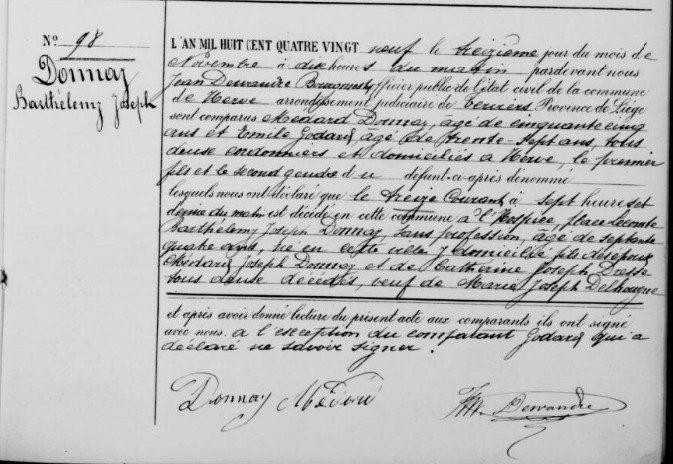 N° 98
Donnay
Barthélemy Joseph
L'AN MIL HUIT CENT QUATRE VINGT neuf le treizième jour du mois de
Novembre à dix heures du matin pardevant nous
Jean Dewandre Bourgmestre Officier public de l'état civil de la commune
de Herve arrondissement judiciaire de Verviers Province de Liége
sont comparus Médard Donnay, âgé de cinquante cinq
ans et Emile Godard, âgé de trente-sept ans, tous
deux cordonniers et domiciliés à Herve, le premier
fils et le second gendre du défunt-ci-après dénommé
lesquels nous ont déclaré que le treize Courant à sept heures et
demie du matin est décédé en cette commune à l'Hospice, place Lecomte
Barthélemy Joseph Donnay, sans profession, âgé de septante
quatre ans, né en cette ville y domicilié fils des époux
Médard Joseph Donnay et de Catherine Joseph Dresse
tous deux décédés, veuf de Marie Joseph Delhougne
et après avoir donné lecture du présent acte aux comparants ils ont signé
avec nous à l'exception du comparant Godard qui a
déclaré ne savoir signer.
Donnay Médard
Dewandre